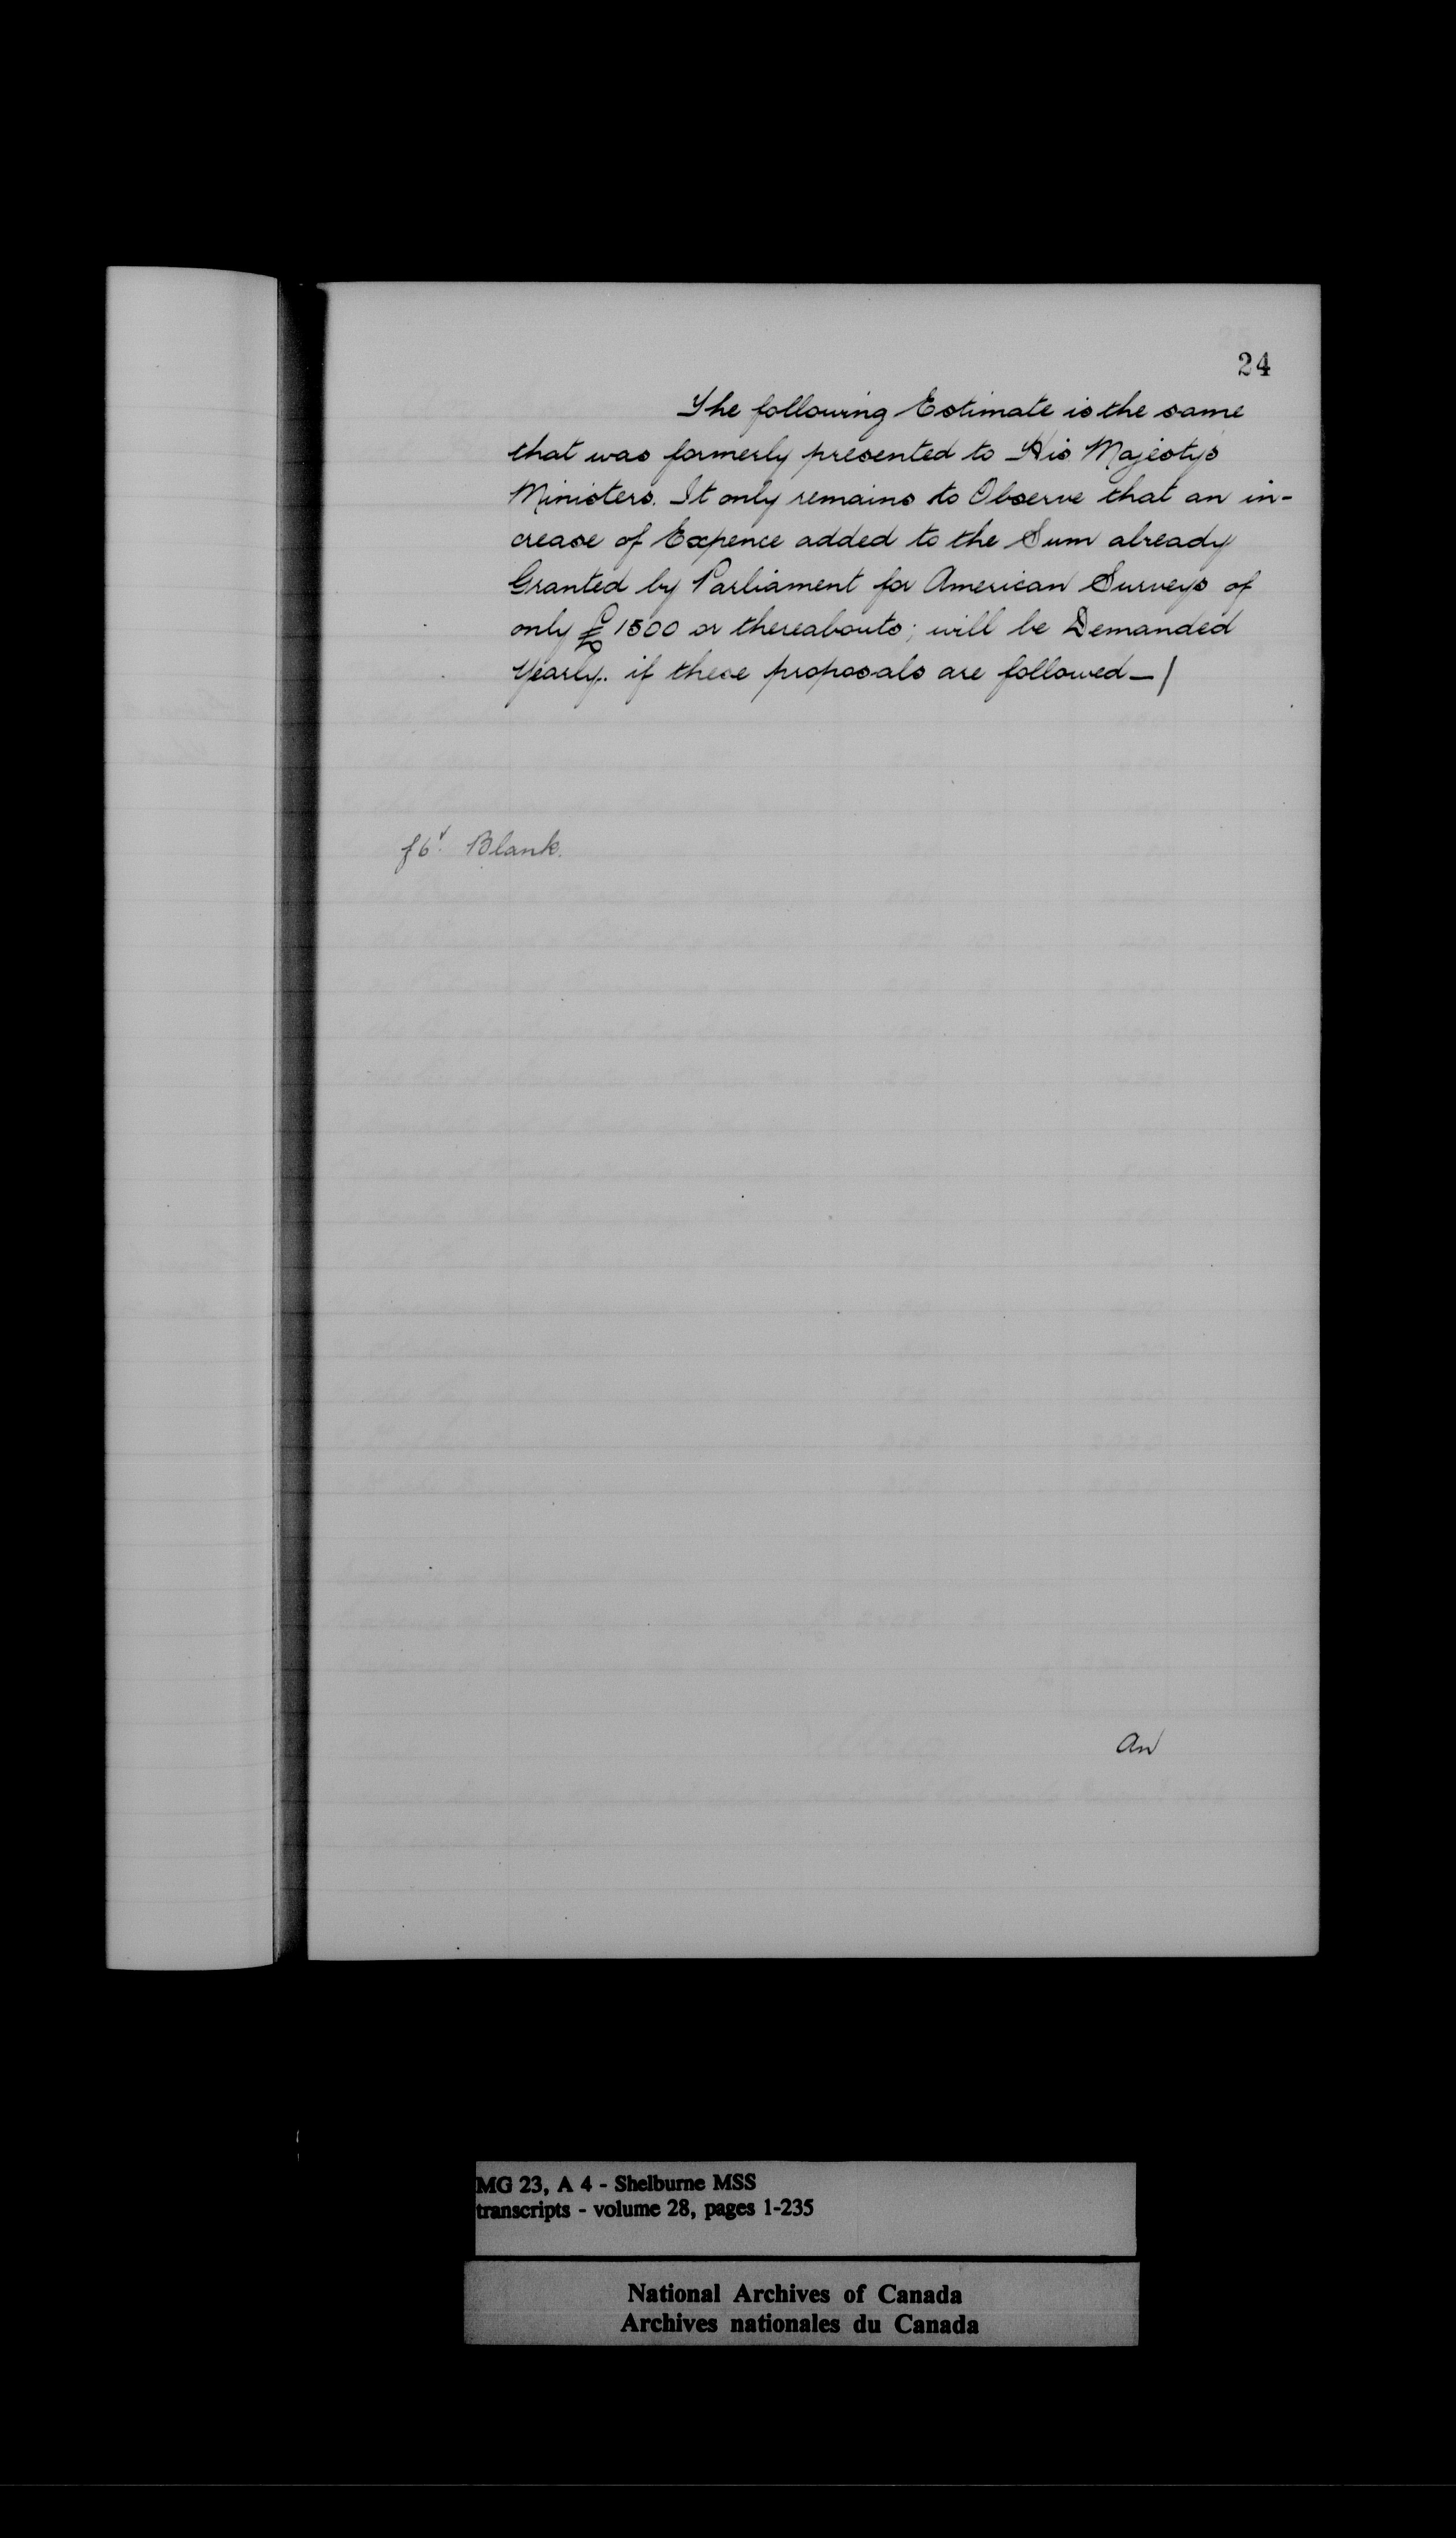 24
The following Estimate is the same
that was formerly presented to His Majestys
Ministers. It only remains to Observe that an in-
crease of Expence added to the Sum already
Granted by Parliament for American Surveys of
only £ 1500 or thereabouts; will be Demanded
Yearly. if these proposals are followed—/
f6v. Blank.
An
MG 23, A 4 - Shelburne MSS
transcripts - volume 28, pages 1-235
National Archives of Canada
Archives nationales du Canada